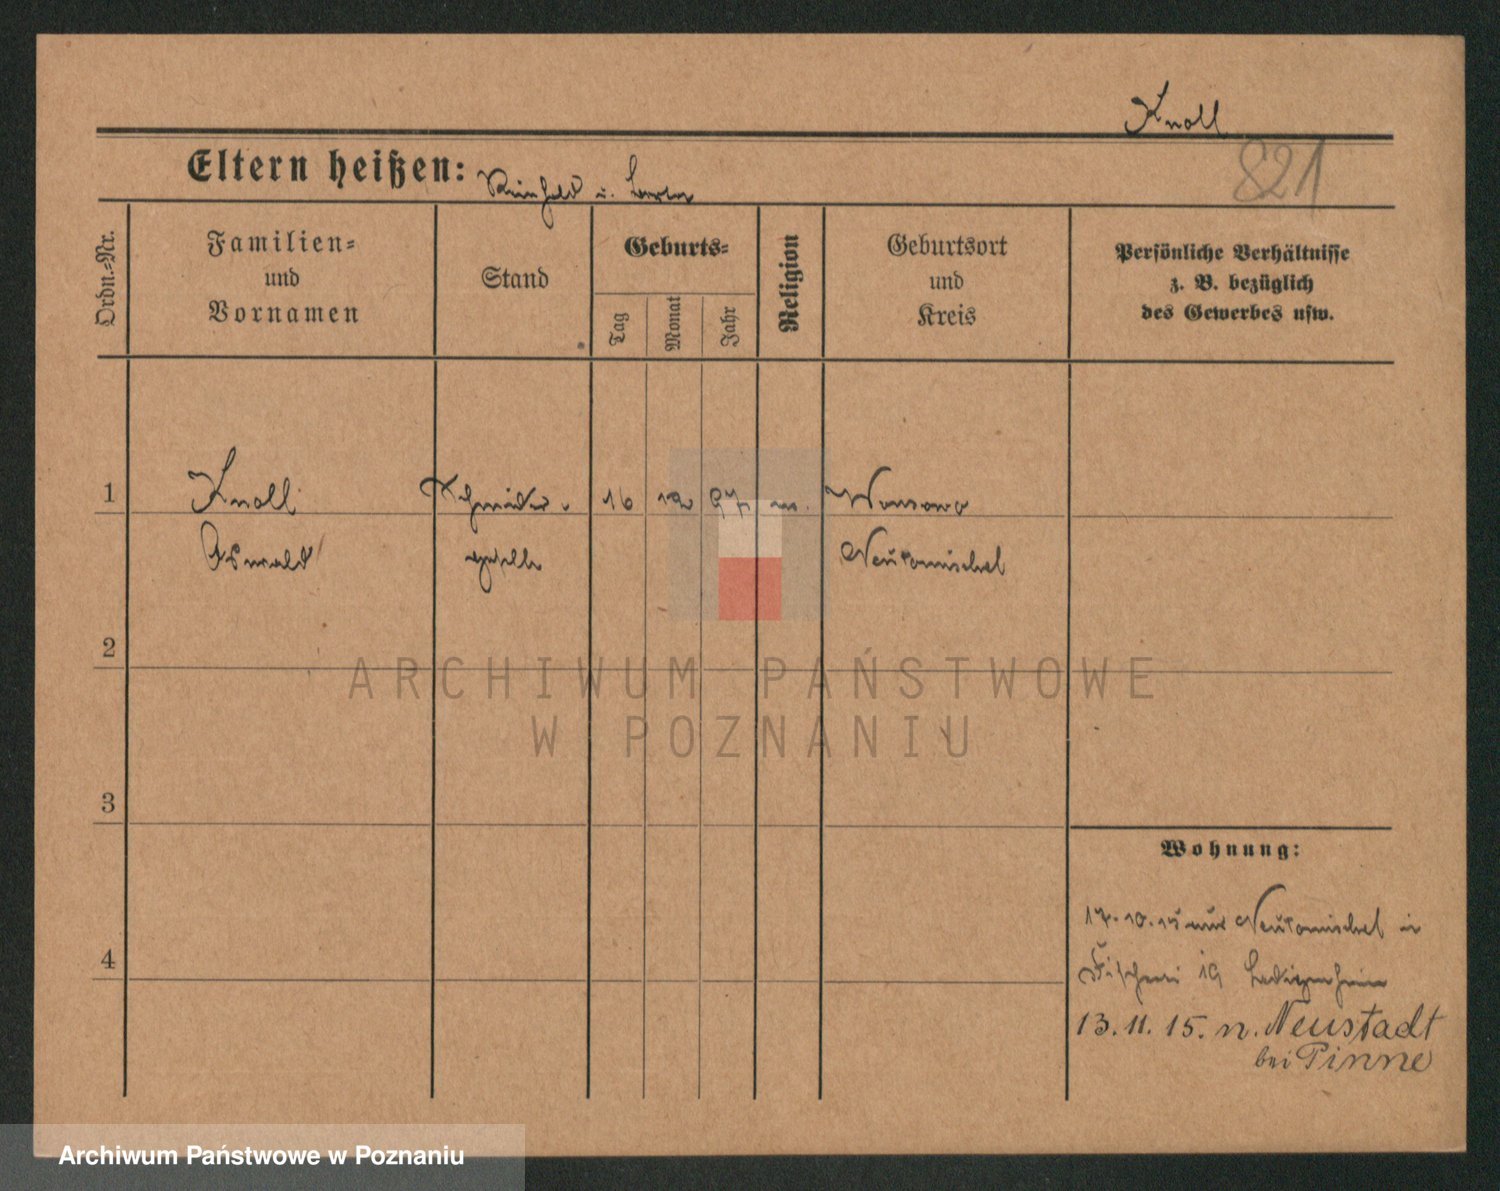 Knoll
821
Eltern heißen: Reinhold u.
Ordn.-Nr.
Familien=
und
Vornamen
Stand
Geburts=
Tag
Monat
Jahr
Religion
Geburtsort
und
Kreis
Persönliche Verhältnisse
z. B. bezüglich
des Gewerbes usw.
1 Knoll Schneider- 16 12 97 Wonsowo
Oswald geselle Neutomischel
2
ARCHIWUM PAŃSTWOWE
W POZNANIU
3
4
Wohnung:
17.10.15 aus Neutomischel in
Fischerei 19 Ledigenheim
13.11.15. n. Neustadt
bei Pinne
Archiwum Państwowe w Poznaniu